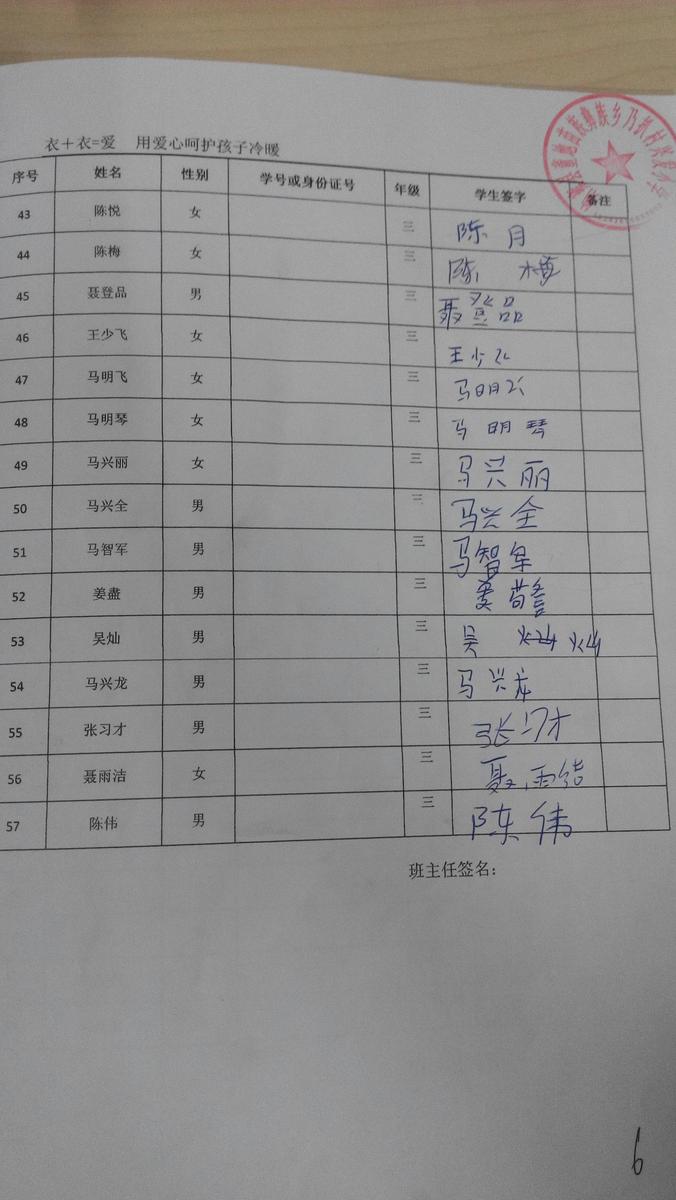 衣+衣=爱 用爱心呵护孩子冷暖
序号 姓名 性别 学号或身份证号 年级 学生签字 备注
43 陈悦 女 三 陈月
44 陈梅 女 三 陈
45 聂登品 男 三 聂登品
46 王少飞 女 三 王少飞
47 马明飞 女 三 马明飞
48 马明琴 女 三 马明琴
49 马兴丽 女 三 马兴丽
50 马兴全 男 三 马兴全
51 马智军 男 三 马智军
52 姜盡 男 三 姜
53 吴灿 男 三 吴灿
54 马兴龙 男 三 马兴龙
55 张习才 男 三 张习才
56 聂雨洁 女 三 聂雨结
57 陈伟 男 三 陈伟
班主任签名:
6